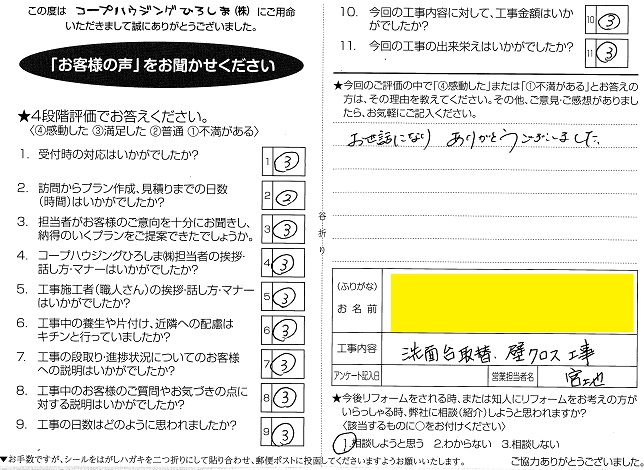 この度は コープハウジングひろしま(株) にご用命
いただきまして誠にありがとうございました。
「お客様の声」をお聞かせください
★4段階評価でお答えください。
〈④感動した ③満足した ②普通 ①不満がある〉
1. 受付時の対応はいかがでしたか？ 1 ③
2. 訪問からプラン作成、見積りまでの日数
（時間）はいかがでしたか？ 2 ②
3. 担当者がお客様のご意向を十分にお聞きし、
納得のいくプランをご提案できたでしょうか。 3 ③
4. コープハウジングひろしま㈱担当者の挨拶・
話し方・マナーはいかがでしたか？ 4 ③
5. 工事施工者（職人さん）の挨拶・話し方・マナー
はいかがでしたか？ 5 ③
6. 工事中の養生や片付け、近隣への配慮は
キチンと行っていましたか？ 6 ③
7. 工事の段取り・進捗状況についてのお客様
への説明はいかがでしたか？ 7 ③
8. 工事中のお客様のご質問やお気づきの点に
対する説明はいかがでしたか？ 8 ③
9. 工事の日数はどのように思われましたか？ 9 ③
▼お手数ですが、シールをはがしハガキを二つ折りにして貼り合わせ、郵便ポストに投函してくださいますようお願いいたします。
谷折り
10. 今回の工事内容に対して、工事金額はいか
がでしたか？ 10 ③
11. 今回の工事の出来栄えはいかがでしたか？ 11 ③
★今回のご評価の中で「④感動した」または「①不満がある」とお答え
の方は、その理由を教えてください。その他、ご意見・ご感想がありまし
たら、お気軽にご記入ください。
お世話になり ありがとうございました。
（ふりがな）
お名前
工事内容 洗面台取替・壁クロス工事
アンケート記入日 営業担当者名 宮地
★今後リフォームをされる時、または知人にリフォームをお考えの方が
いらっしゃる時、弊社に相談（紹介）しようと思われますか？
〈該当するものに○をお付けください〉
①.相談しようと思う 2.わからない 3.相談しない
ご協力ありがとうございました。